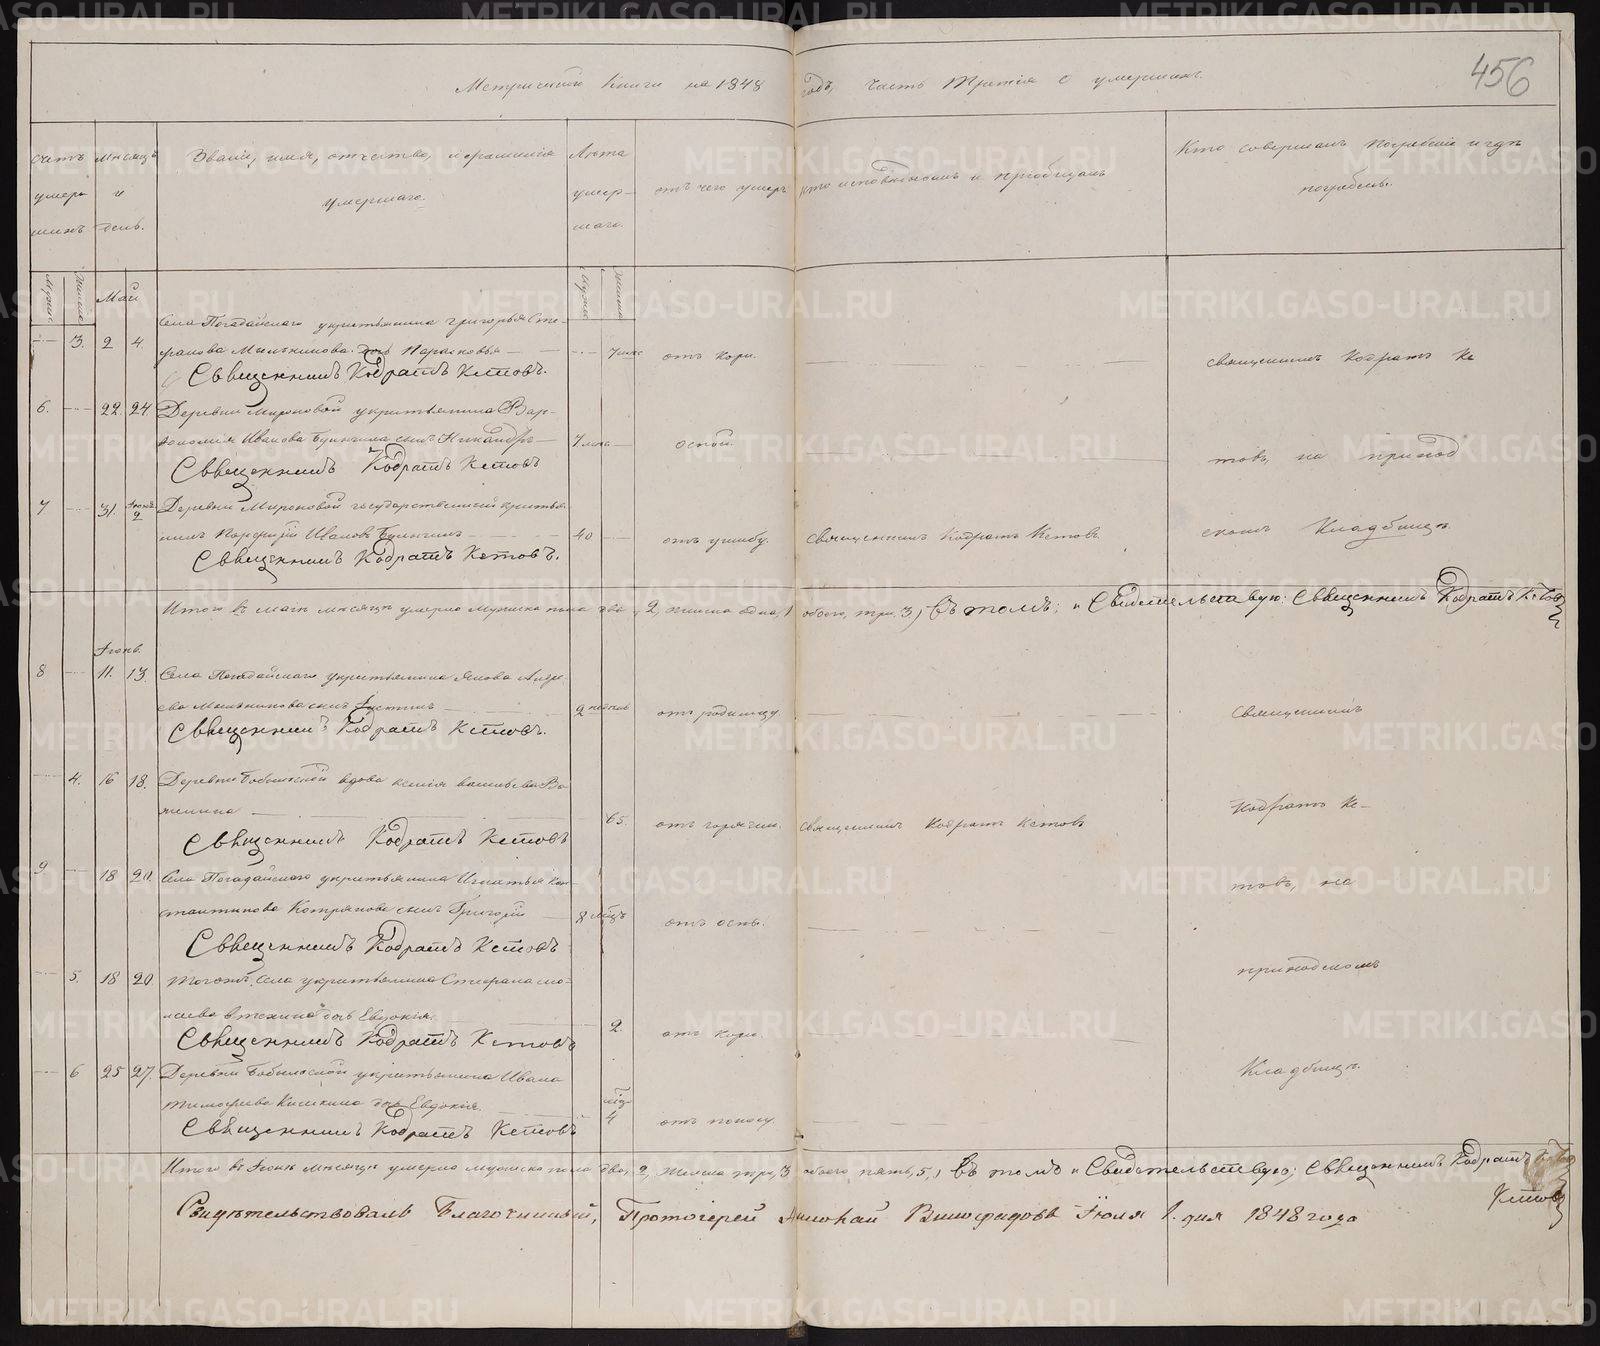 Метрической Книги на 1848 годъ, часть Третія о умершихъ.
456
Счетъ умершихъ
Мѣсяцъ и день.
Званіе, имя, отчество, и фамилія умершаго.
Лѣта умершаго.
отъ чего умеръ
кто исповѣдывалъ и пріобщалъ
Кто совершалъ Погребеніе и гдѣ погребенъ.
Май
Села Погадайскаго у крестьянина Григорья Сте-
3. 2 4. фанова Мыльникова дочь Парасковья 7 мѣс отъ кори. священникъ Кодратъ Ке
Священникъ Кодратъ Кетовъ.
6. 22 24 Деревни Мироновой у крестьянина Вар-
ѳоломѣя Иванова сынъ Никандръ 7 мѣс оспой. товъ, на приход
Священникъ Кодратъ Кетовъ
7 31. Іюня 2 Деревни Мироновой государственный крестья-
нинъ Порфирій Ивановъ 40 отъ ушибу. священникъ Кодратъ Кетовъ скомъ Кладбищѣ.
Священникъ Кодратъ Кетовъ.
Итого въ маѣ мѣсяцѣ умерло мужска пола два, 2, женска одна, 1 обоего, три. 3, въ томъ: и Свидетельствую: Священникъ Кодратъ Кетовъ
Іюнь.
8 11. 13. Села Погадайскаго у крестьянина Якова Андре-
ева Мыльникова сынъ Іустинъ 2 недель отъ родимцу Священникъ
Священникъ Кодратъ Кетовъ.
4. 16 18. Деревни вдова васильева Ва-
женина 65. отъ горячки. священникъ Кодратъ Кетовъ Кодратъ Ке-
Священникъ Кодратъ Кетовъ
9 18 20 Села Погадайскаго у крестьянина Игнатья Кон-
стантинова сынъ Григорій 8 мѣц отъ оспы. товъ, на
Священникъ Кодратъ Кетовъ
5. 18 20 Тогожъ Села у крестьянина Стефана
дочь Евдокія. 2. отъ кори. приходскомъ
Священникъ Кодратъ Кетовъ
6 25 27. Деревни у крестьянина Ивана
Тимофѣева дочь Евдокія. мѣц 4 отъ поносу. Кладбищѣ.
Священникъ Кодратъ Кетовъ
Итого въ Іюнѣ мѣсяцѣ умерло мужска пола два, 2, женска три, 3 обоего пять, 5, въ томъ и Свидетельствую; Священникъ Кодратъ
Кетовъ
Свидѣтельствовалъ Благочинный, Протоіерей Виноградовъ Іюля 1. дня 1848 года
METRIKI.GASO-URAL.RU